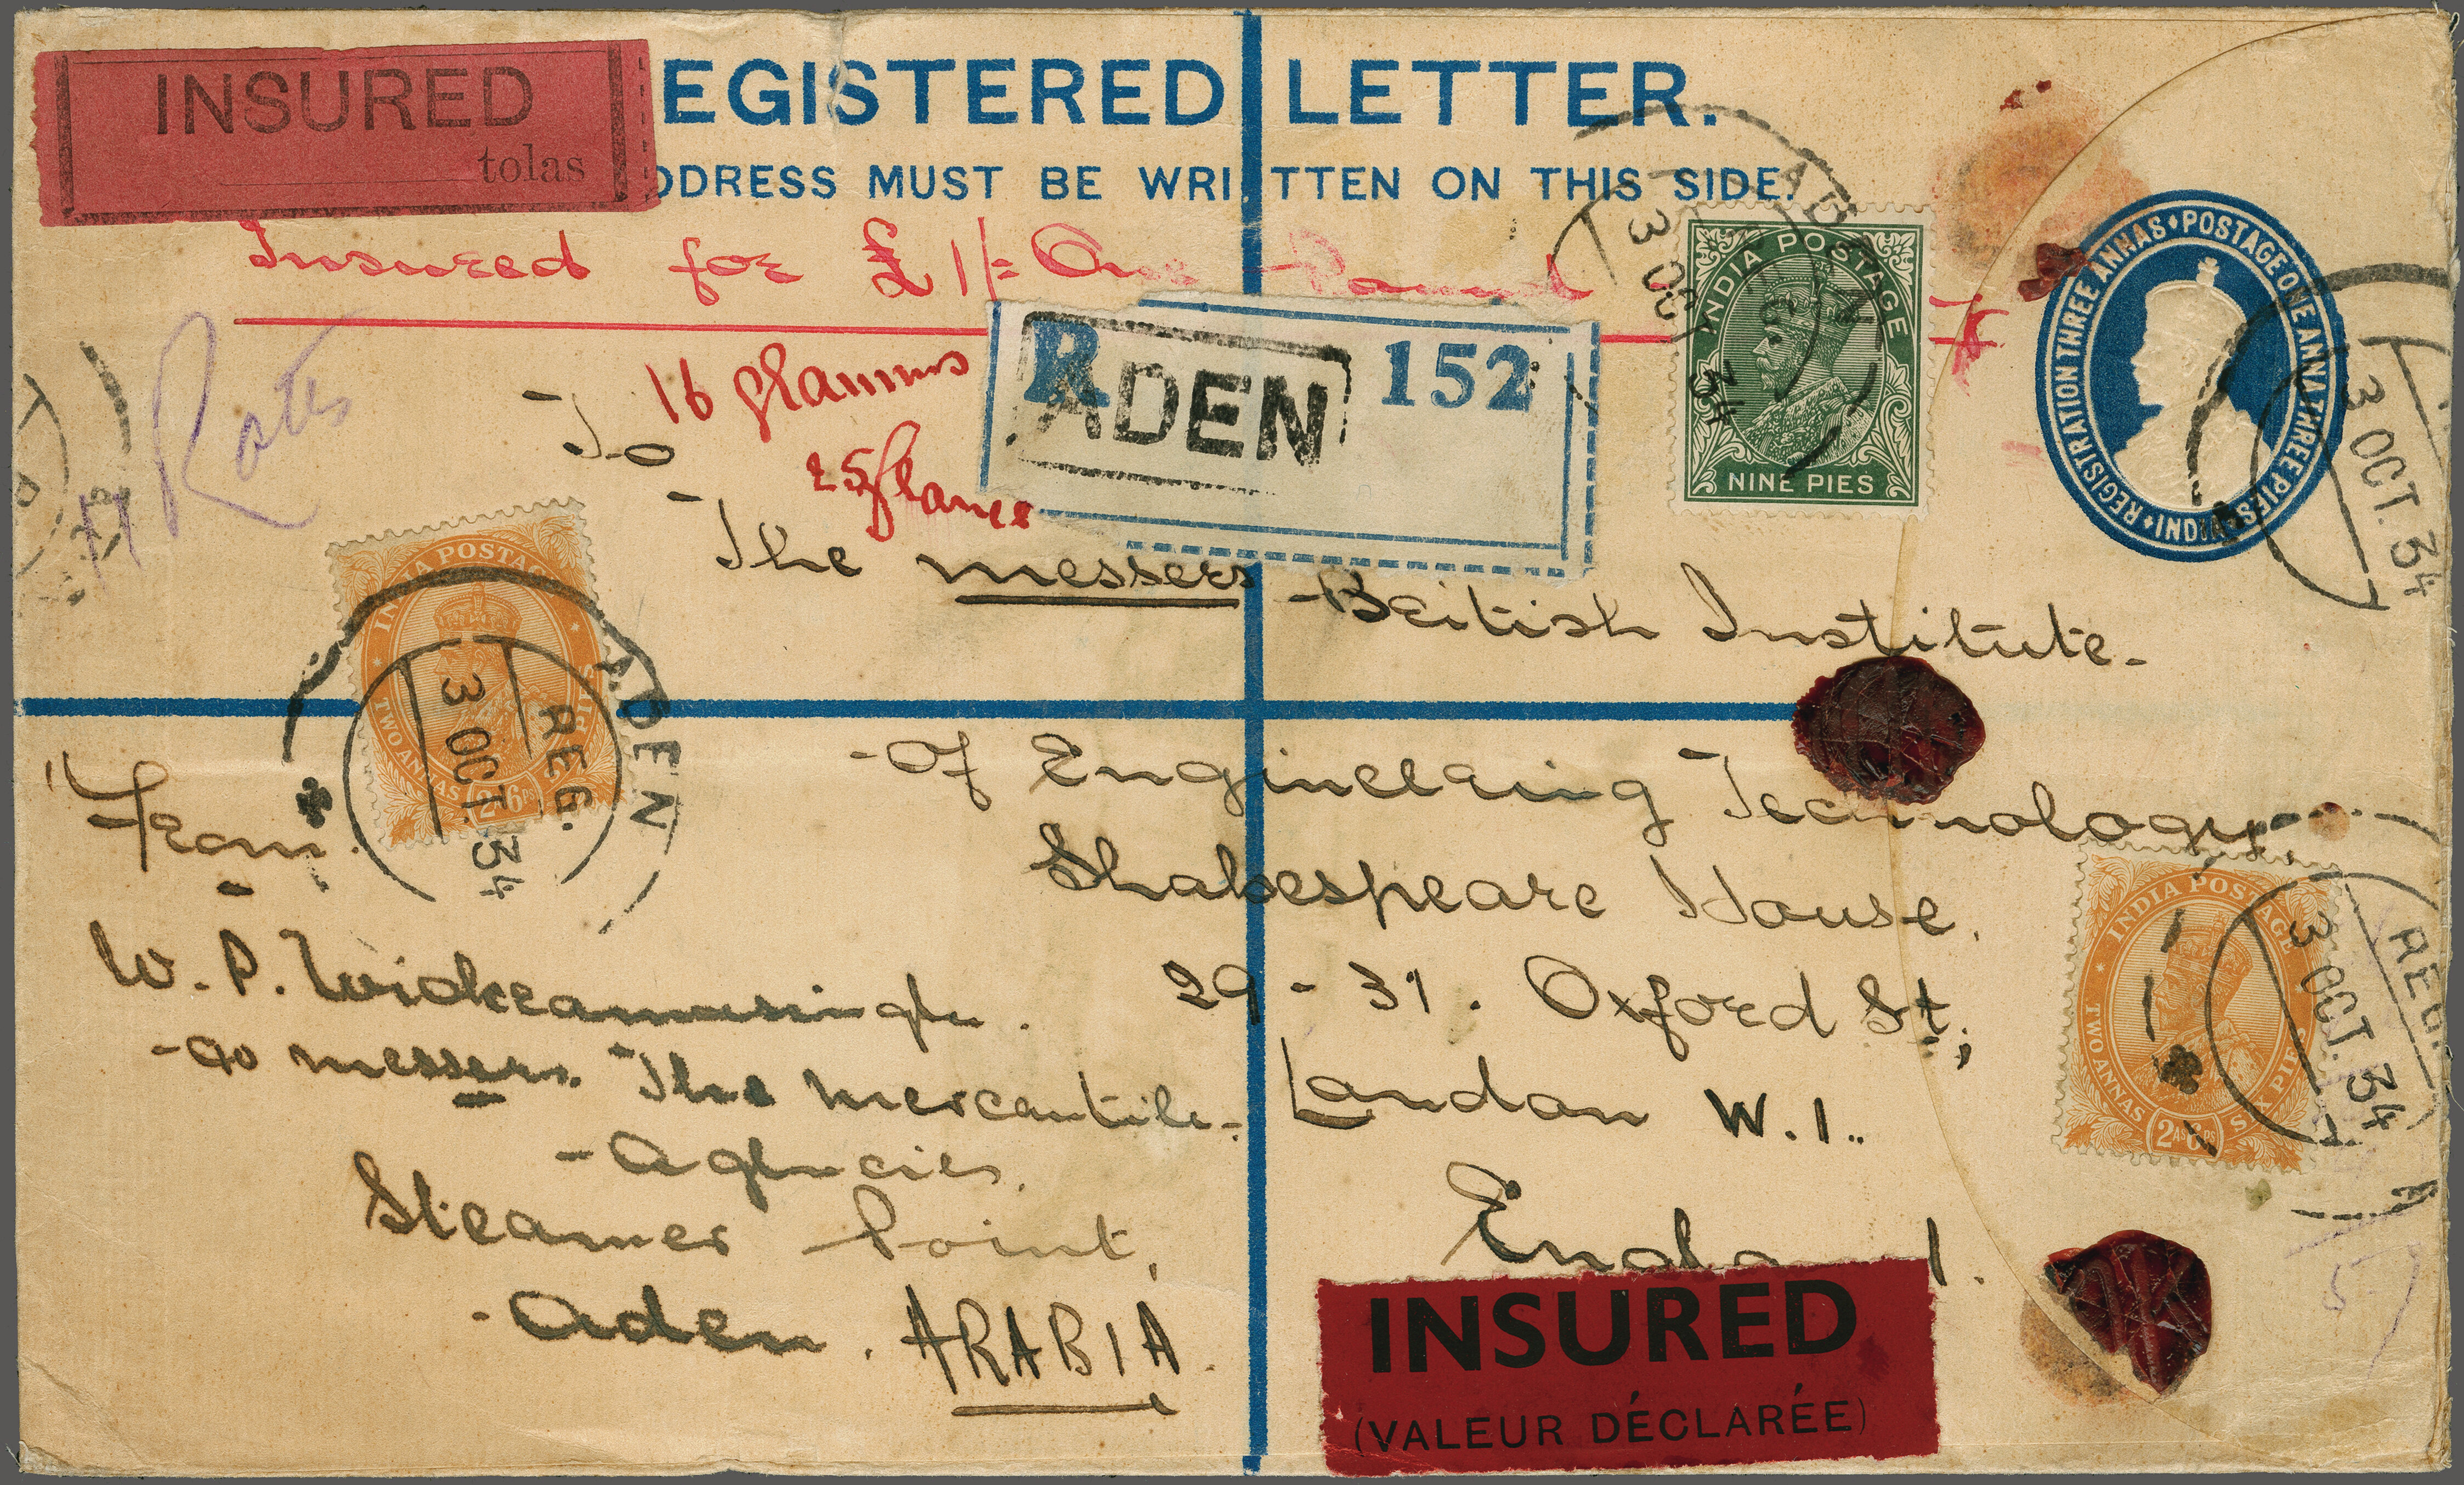 INSURED
tolas
EGISTERED LETTER.
DDRESS MUST BE WRITTEN ON THIS SIDE.
Insured for £1/= One Pound
R ADEN 152
16 grammes
Rates
To
The messers British Institute-
-of Engineering Technology,
Shakespeare House,
29-31. Oxford St;
London W.1..
England.
INDIA POSTAGE
NINE PIES
ADEN
3 OCT 34
INDIA REGISTRATION THREE ANNAS POSTAGE ONE ANNA THREE PIES
3 OCT. 34
INDIA POSTAGE
TWO ANNAS
2As6ps
ADEN
REG.
3 OCT. 34
INDIA POSTAGE
TWO ANNAS SIX PIES
2As6ps
REG.
3 OCT. 34
From:
W. P. Wickramasinghe.
messers. The mercantile-
-Agencies,
Steamer Point,
-Aden. ARABIA.
INSURED
(VALEUR DÉCLARÉE)